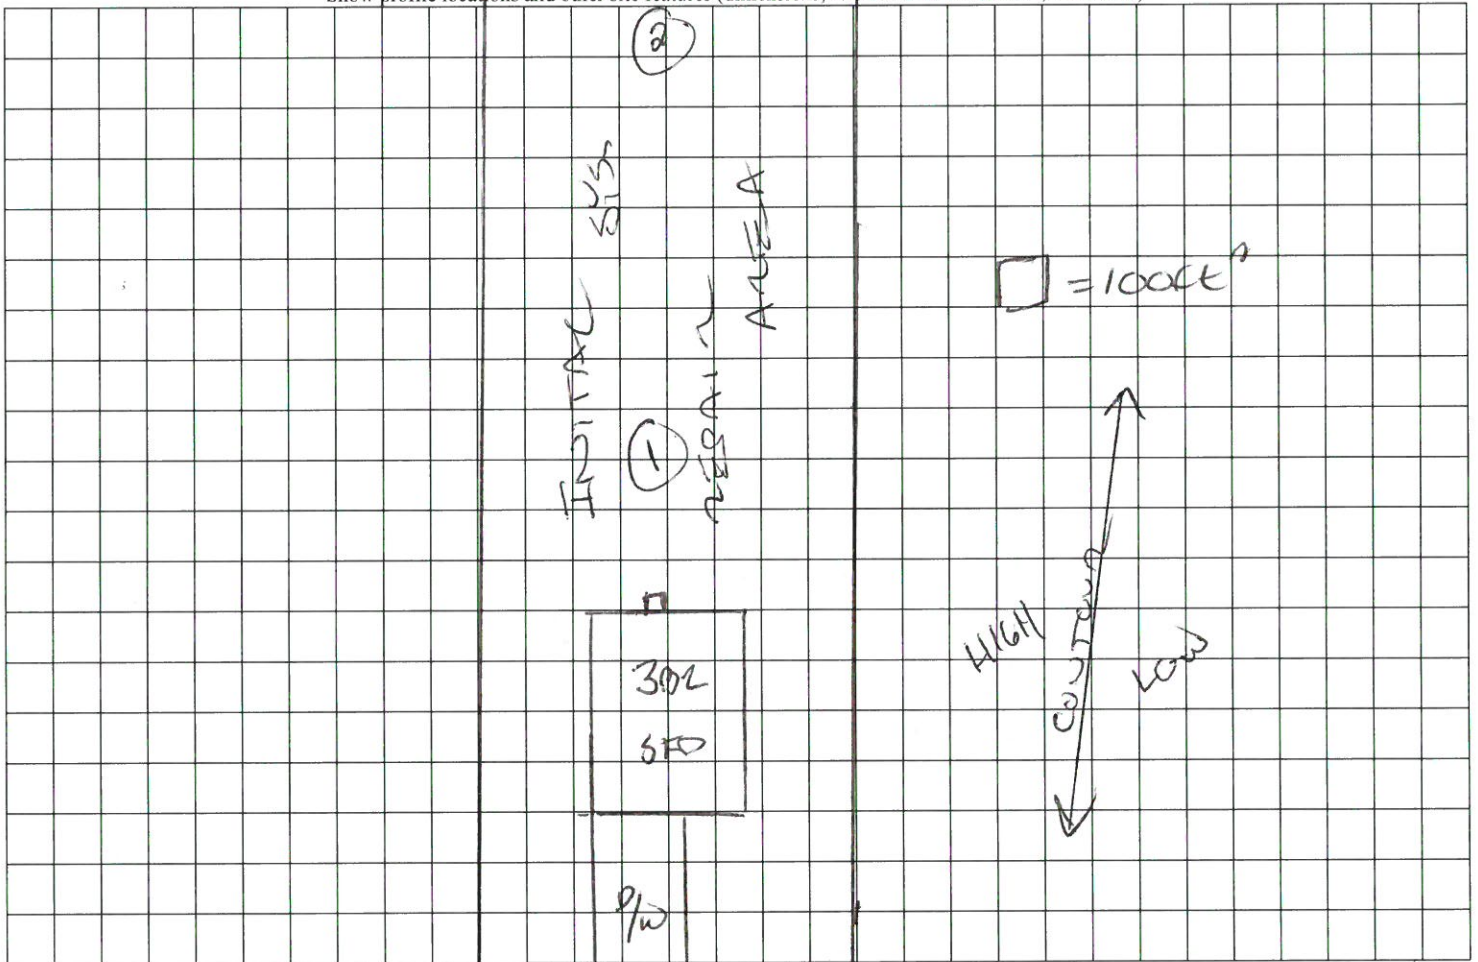 2
INITIAL SYS.
REPAIR AREA
1
= 100ft²
HIGH
CONTOUR
LOW
3BR
SFD
D/W